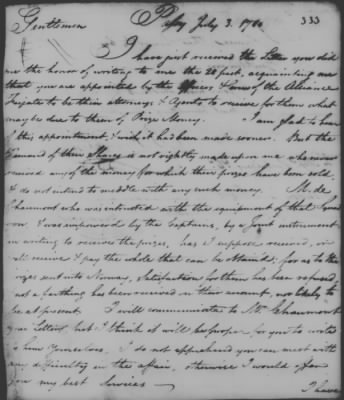 Gentlemen Passy July 3. 1780. 333
I have just received the Letter you did
me the honor of writing to me the 28 past, acquainting me
that you are appointed by the Officers & Crew of the Alliance
Frigate to be their attorneys & Agents to receive for them what
may be due to them of Prize Money. I am glad to hear
of this appointment, & wish it had been made sooner. But the
Demand of their Shares is not rightly made upon me who never
received any of the money for which their prizes have been sold,
& do not intend to meddle with any such money. M. de
Chaumont who was intrusted with the equipment of that Squad
ron & was impowered by the Captains, by a Joint instrument
in writing to receive the prizes, has I suppose received, or
will receive & pay the whole that can be obtained; for as to the
Prizes sent into Norway, Satisfaction for them has been refused
not a farthing has been received on their account, nor likely to
be at present. I will communicate to Mr Chaumont
your Letter, but I think it will be proper for you to write
to him yourselves. I do not apprehend you can meet with
any difficulty in the affair, otherwise I would offer
you my best Services —
I have